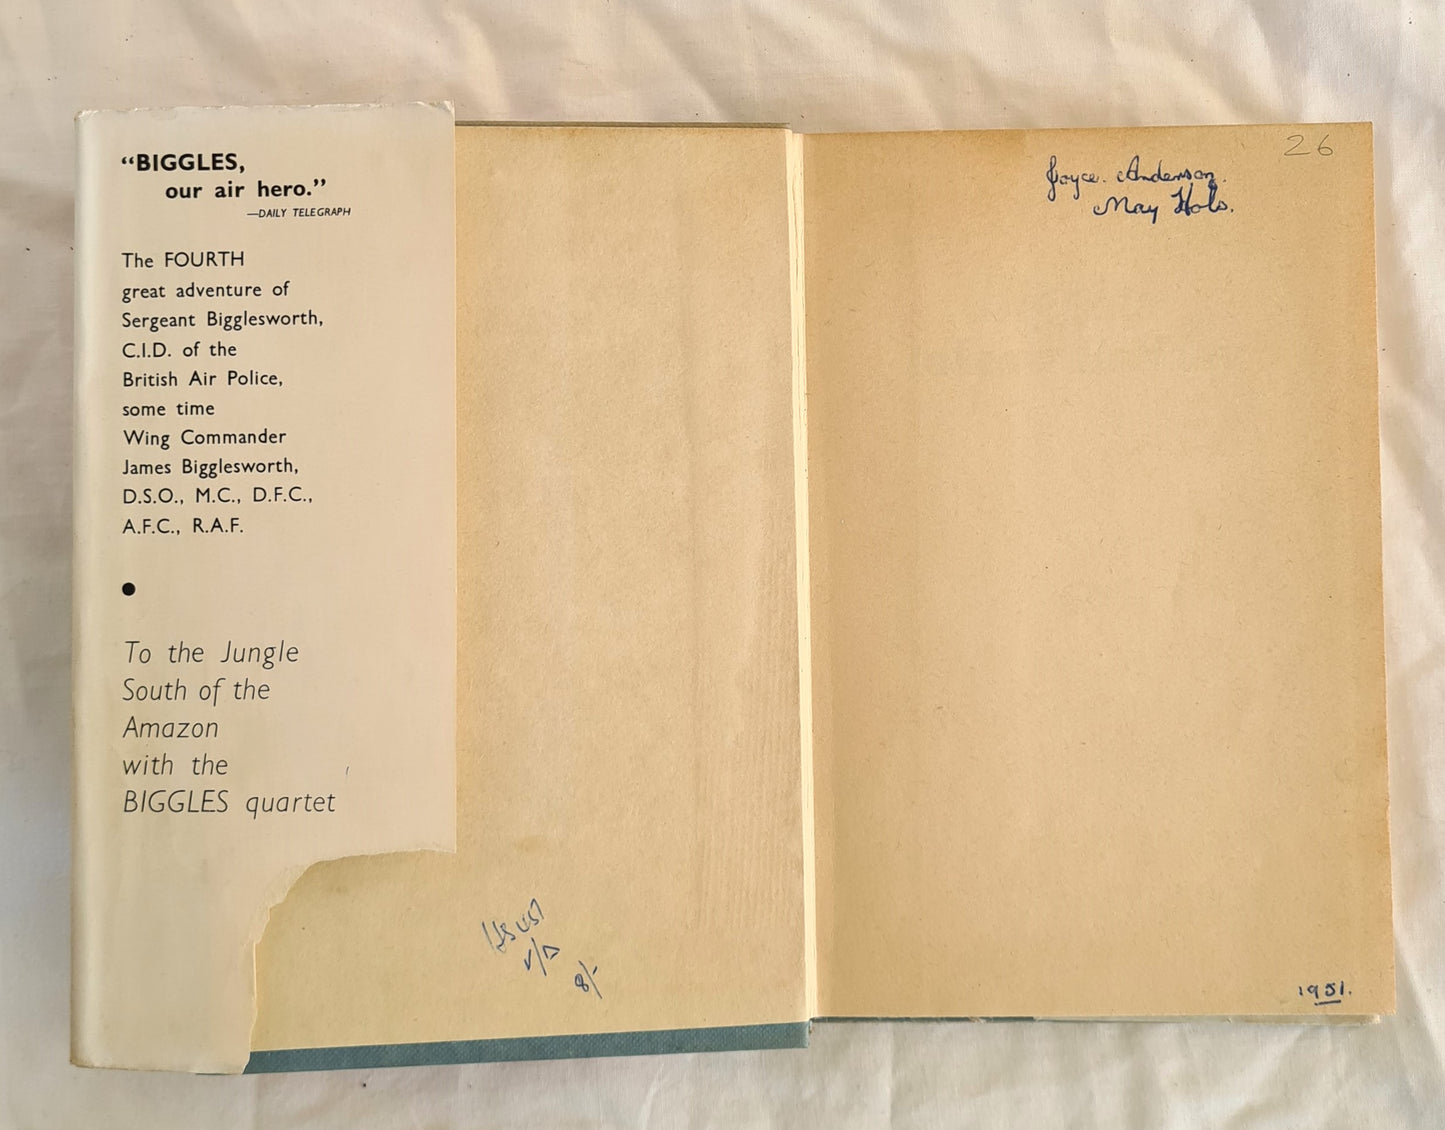 “BIGGLES,
our air hero.”
—DAILY TELEGRAPH
The FOURTH
great adventure of
Sergeant Bigglesworth,
C.I.D. of the
British Air Police,
some time
Wing Commander
James Bigglesworth,
D.S.O., M.C., D.F.C.,
A.F.C., R.A.F.
To the Jungle
South of the
Amazon
with the
BIGGLES quartet
8/-
26
Joyce. Anderson.
May Hols.
1951.